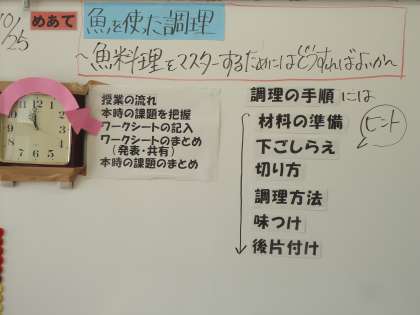 10/25
めあて
魚を使た調理
～魚料理をマスターするためにはどうすればよいかん
授業の流れ
本時の課題を把握
ワークシートの記入
ワークシートのまとめ
(発表・共有)
本時の課題のまとめ
調理の手順には
材料の準備
ヒント
下ごしらえ
切り方
調理方法
味つけ
後片付け
12
1
2
3
4
5
6
7
8
9
10
11